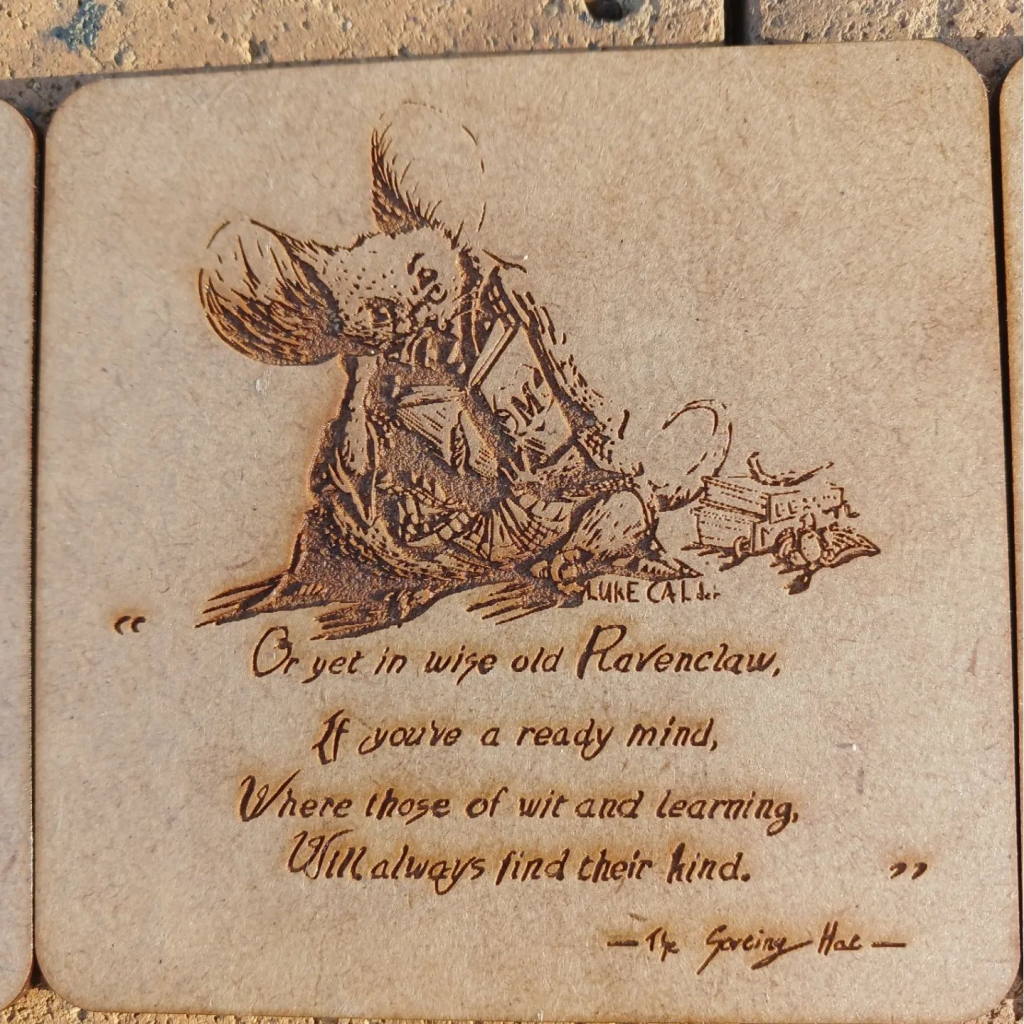 LUKE CALder
“
Or yet in wise old Ravenclaw,
If you've a ready mind,
Where those of wit and learning,
Will always find their kind.
”
— The Sorting Hat —